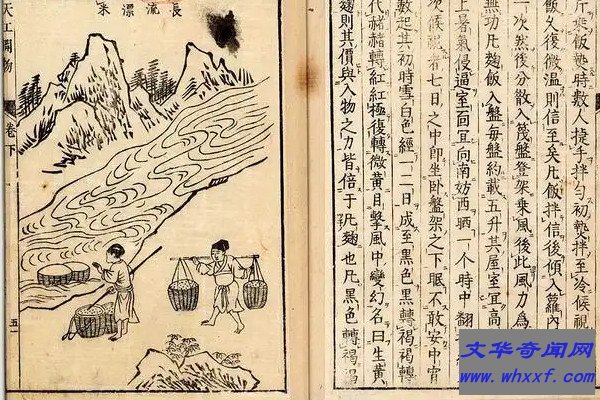 斤乘飯熱時數人捷手拌勻初熱拌至冷候視
飯久復微溫則信至矣凡飯拌信後傾入籮內
一次然後分散入篾盤登架乘風後此風力為
無功凡麴飯入盤每盤約載五升其屋室宜高
上暑氣侵逼室面宜向南妨西晒一個時中翻
次候視者七日之中即坐臥盤架之下眠不敢安中宵
數起其初時雪白色經一二日成至黑色黑轉褐褐轉
代赭赭轉紅紅極復轉微黃目擊風中變幻名曰生黃
麴則其價與入物之力皆倍于凡麴也凡黑色轉褐褐
長流漂米
天工開物 卷下 五一
文华奇闻网
www.whxxf.com